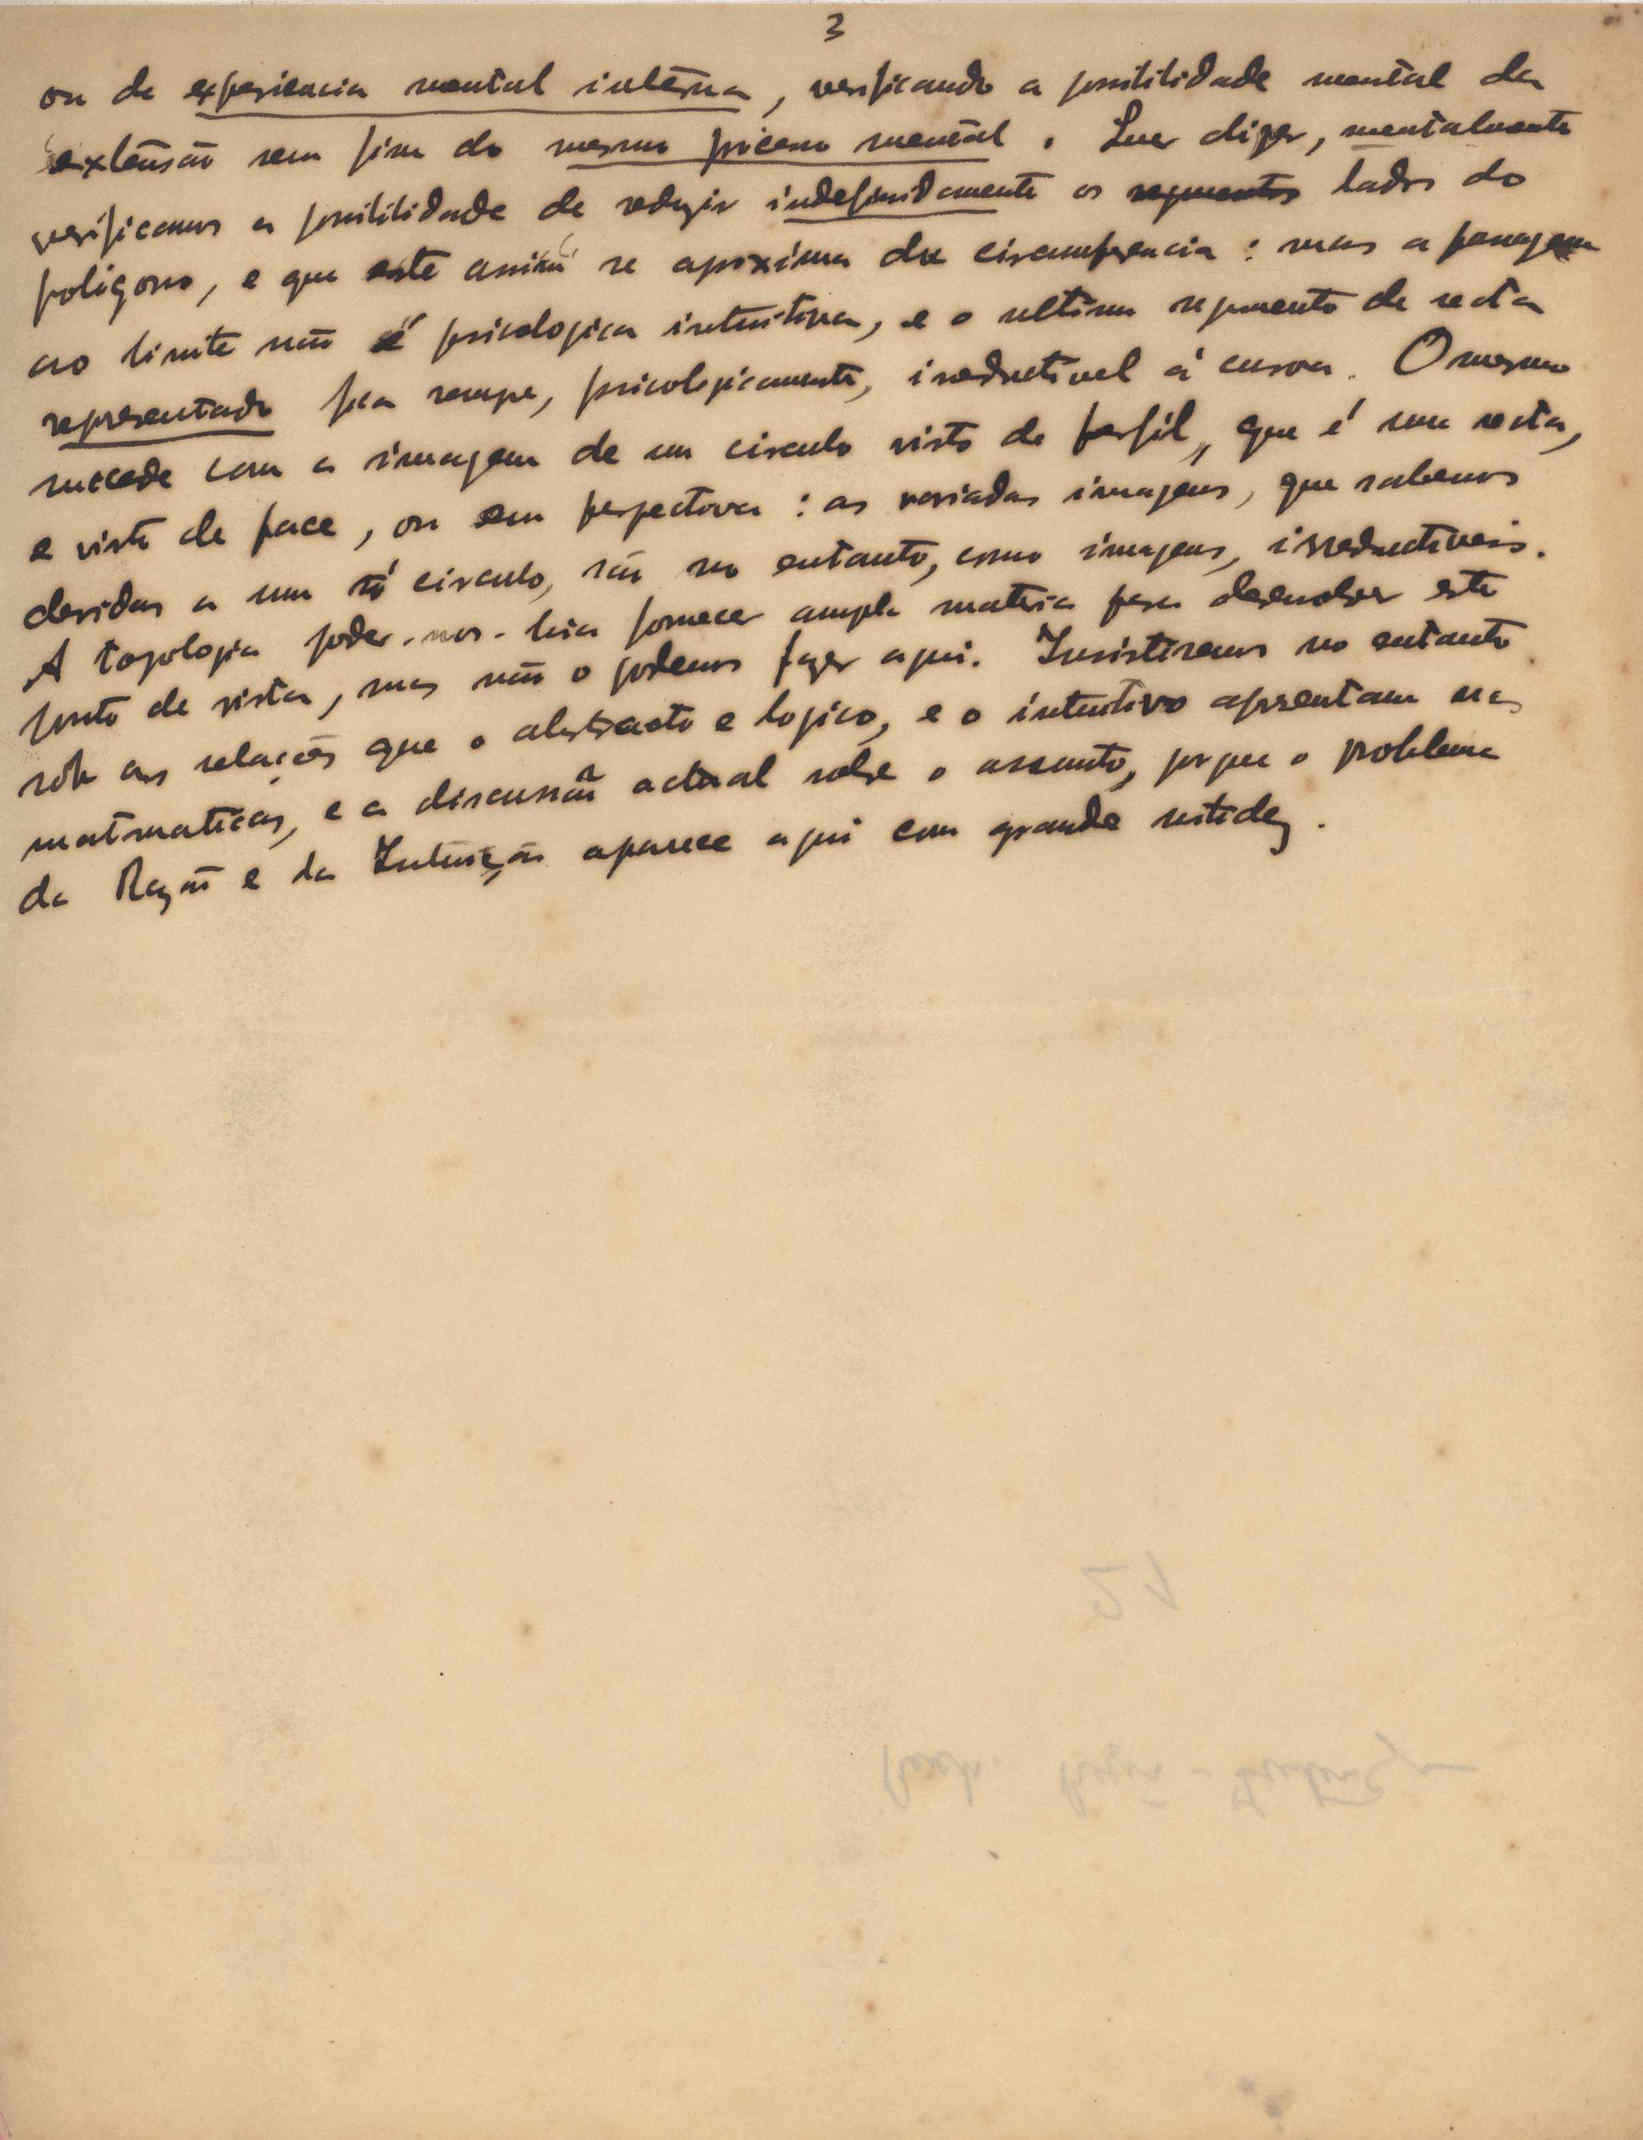 3
ou de experiencia mental interna, verificando a possibilidade mental da
extensão sem fim do mesmo processo mental. Quer dizer, mentalmente
verificamos a possibilidade de reduzir indefinidamente os segmentos lados do
poligono, e que este assim se aproxima da circumferencia: mas a passagem
ao limite não é psicologica intuitiva, e o ultimo segmento de recta
representado fica sempre, psicologicamente, irreductivel á curva. O mesmo
succede com a imagem de um circulo visto de perfil, que é uma recta,
e visto de face, ou em perspectiva: as variadas imagens, que sabemos
devidas a um só circulo, são no entanto, como imagens, irreductiveis.
A topologia poder-nos-hia fornecer ampla materia para desenvolver este
ponto de vista, mas não o podemos fazer aqui. Insistiremos no entanto
sôbre as relações que o abstracto e logico, e o intuitivo apresentam nas
matematicas, e a discussão actual sobre o assunto, porque o problema
da Razão e da Intuição aparece aqui com grande nitidez.